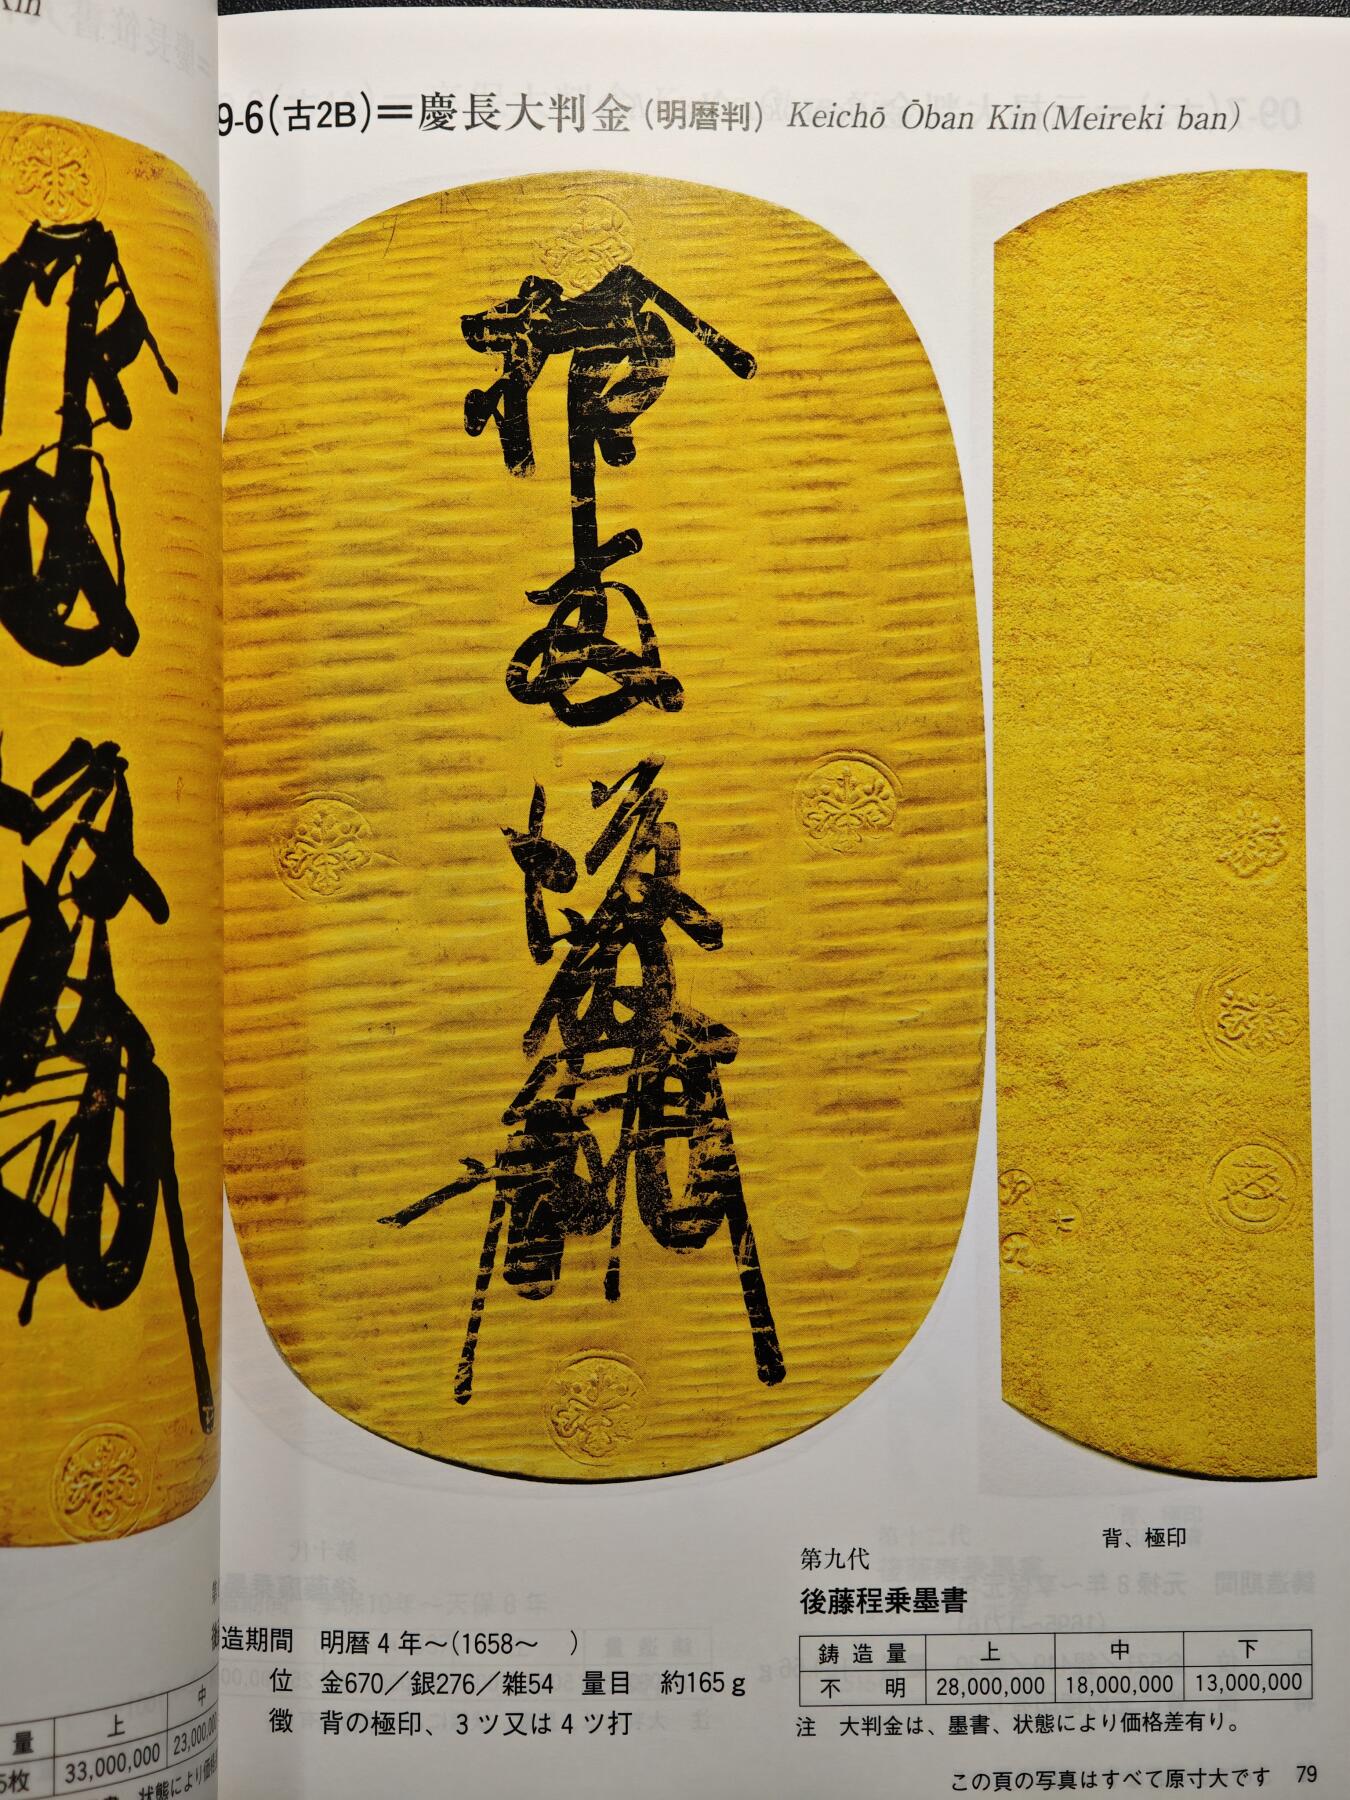 Kin
量
上
中
5枚
33,000,000
23,000,00
9-6(古2B)=慶長大判金(明暦判) Keichō Ōban Kin(Meireki ban)
背、極印
第九代
後藤程乗墨書
造期間 明暦4年~(1658~ )
位 金670/銀276/雑54 量目 約165g
徴 背の極印、3ツ又は4ツ打
鋳造量 上 中 下
不明 28,000,000 18,000,000 13,000,000
注 大判金は、墨書、状態により価格差有り。
この頁の写真はすべて原寸大です 79